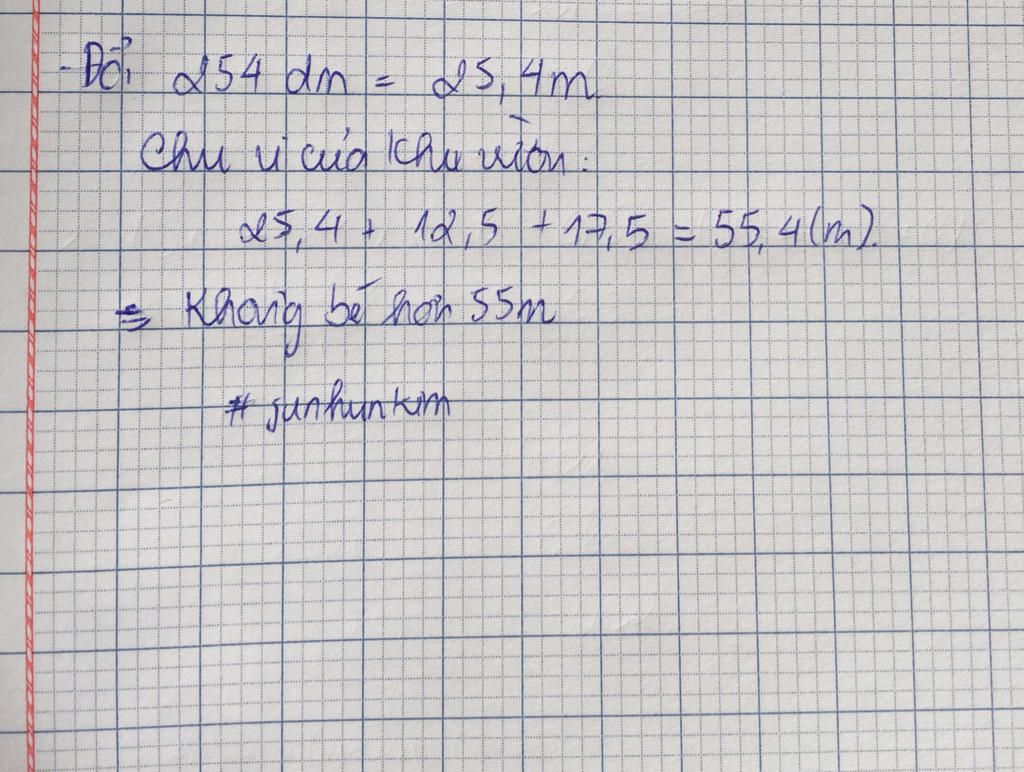 - Đổi 254 dm = 25,4m
Chu vi của khu vườn:
25,4 + 12,5 + 17,5 = 55,4(m).
=> Không bé hơn 55m
# junhunkim